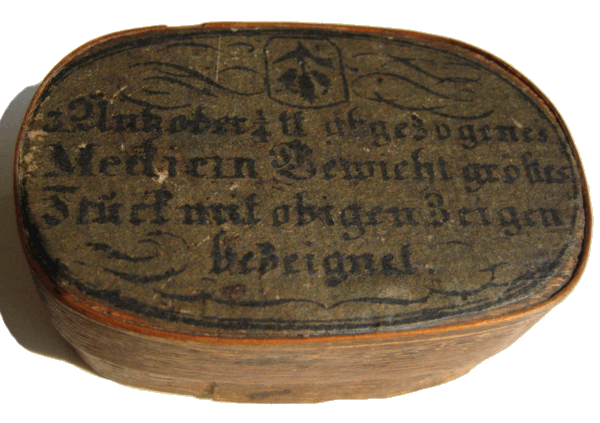 3 Unz oder ¼ ℔ abgezogenes
Medicin Gewicht großes
Stück mit obigen Zeigen
bezeignet.